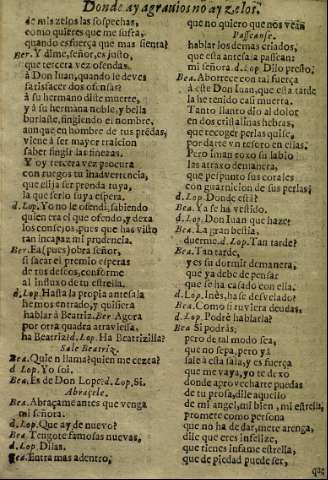 Donde ay agrauios no ay zelos,
de mis zelos las sospechas,
como quieres que me sufra,
quando es fuerça que mas sienta?
Ber. Y dime, señor, es justo,
que tercera vez ofendas.
à Don Iuan, quando le deves
satisfacer dos ofensas?
à su hermano diste muerte,
y à su hermana noble, y bella
burlaste, fingiendo el nombre,
aun que en hombre de tus prēdas,
viene à ser mayor traicion
saber fingir las finezas.
Y oy tercera vez procura
con ruegos tu inadvertencia,
que elija ser prenda tuya,
la que serlo suya espera.
d. Lop. Yo no le ofendi, sabiendo
quien era el que ofendo, y dexa
los consejos, pues que has visto
tan incapaz mi prudencia.
Ber. Ea (pues) obra señor,
si sacar el premio esperas
de tus deseos, conforme
al influxo de tu estrella.
d. Lop. Hasta la propia antesala
hemos entrado, y quisiera
hablar à Beatriz. Ber. Agora
por otra quadra atraviessa.
ha Beatriz? d. Lop. Ha Beatrizilla?
Sale Beatriz.
Bea. Quien llama? quien me cecea?
d Lop. Yo soi.
Bea. Es de Don Lope? d. Lop. Si.
Abraçele.
Bea. Abraçame antes que venga
mi señora.
d. Lop. Que ay de nuevo?
Bea Tengote famosas nuevas,
d. Lop. Dilas.
Bea. Entra mas adentro,
que no quiero que nos vean
Passeanse.
hablar los demas criados,
que esta antesala passean:
mi señora. d. Lop. Dilo presto;
Bea. Aborrece con tal fuerça
à este Don Iuan, que esta tarde
la he tenido casi muerta.
Tanto llanto dio al dolor
en dos cristalinas hebras,
que recoger perlas quise,
por darte vn tesoro en ellas.
Pero iman roxo su labio
las atraxo de manera,
que pespuntò sus corales
con guarnicion de sus perlas;
d. Lop. Donde està?
Bea. Ya se ha vestido.
d. Lop. Don Iuan que haze?
Bea. La gran bestia,
duerme. d. Lop. Tan tarde?
Bea. Tan tarde,
y es su dormir de manera,
que ya debe de pensar
que se ha casado con ella.
d. Lop. Inès, ha se desvelado?
Bea. Como si tuviera deudas,
d. Lop. Podrè hablarla?
Bea Si podràs;
pero de tal modo sea,
que no sepa, pero yà
sale à esta sala, y es fuerça
que me vaya, yo te dexo
donde aprovecharte puedas
de tu prosa, dile aquello
de mi angel, mi bien, mi estrella,
promete como persona
que no ha de dar, mete arenga,
dile que eres infelize,
que tienes infame estrella,
que de piedad puede ser,
que